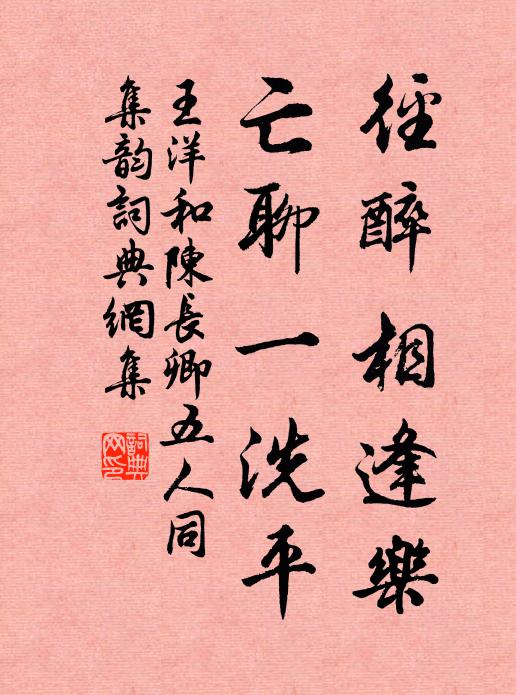 徑醉相逢樂
亡聊一洗平
王洋和陳長卿五人同
集韵詞典網集
詞典网印